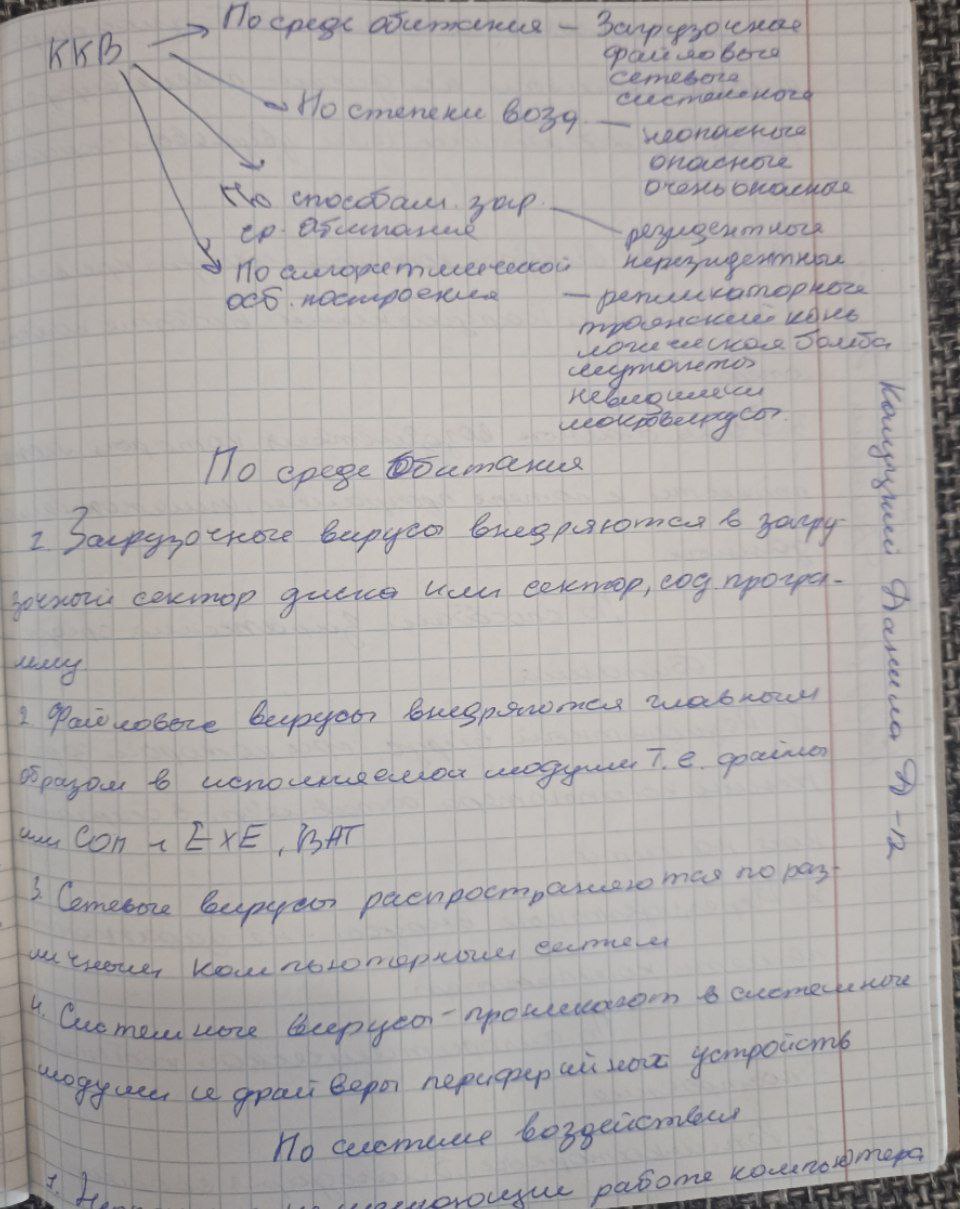 ККВ
По среде обитания - Загрузочные
файловые
сетевые
системные
По степени возд. - неопасные
опасные
очень опасные
По способам. зар.
ср. обитания
резидентные
нерезидентные
По алгоритмической
осб. построения
- репликаторные
троянский конь
логическая бомба
мутанты
невидимки
макровирусы.
По среде Обитания
1. Загрузочные вирусы внедряются в загру-
зочный сектор диска или сектор, сод. програ-
мму.
2 Файловые вирусы внедряются главным
образом в исполняемой модули т.е. файлы
или СОМ и EXE, BAT
3. Сетевые вирусы распространяются по раз-
личным компьюторным сетям
4. Системные вирусы - проникают в системные
модули и драйверы периферийных устройств
По системе воздействия
1. работе компьютера
Данила Д-12